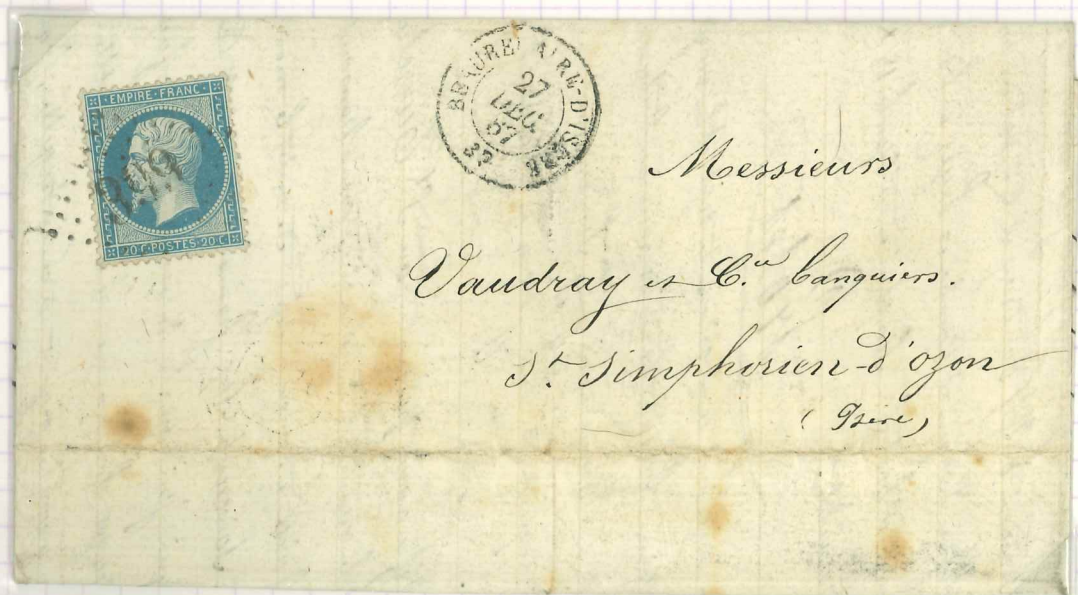 EMPIRE·FRANC·
20 C·POSTES·20 C
BEAUREPAIRE-D'ISÈRE
27
DEC.
67
37
Messieurs
Vaudray et C.ie banquiers.
St. Simphorien-d'ozon
(Isère)